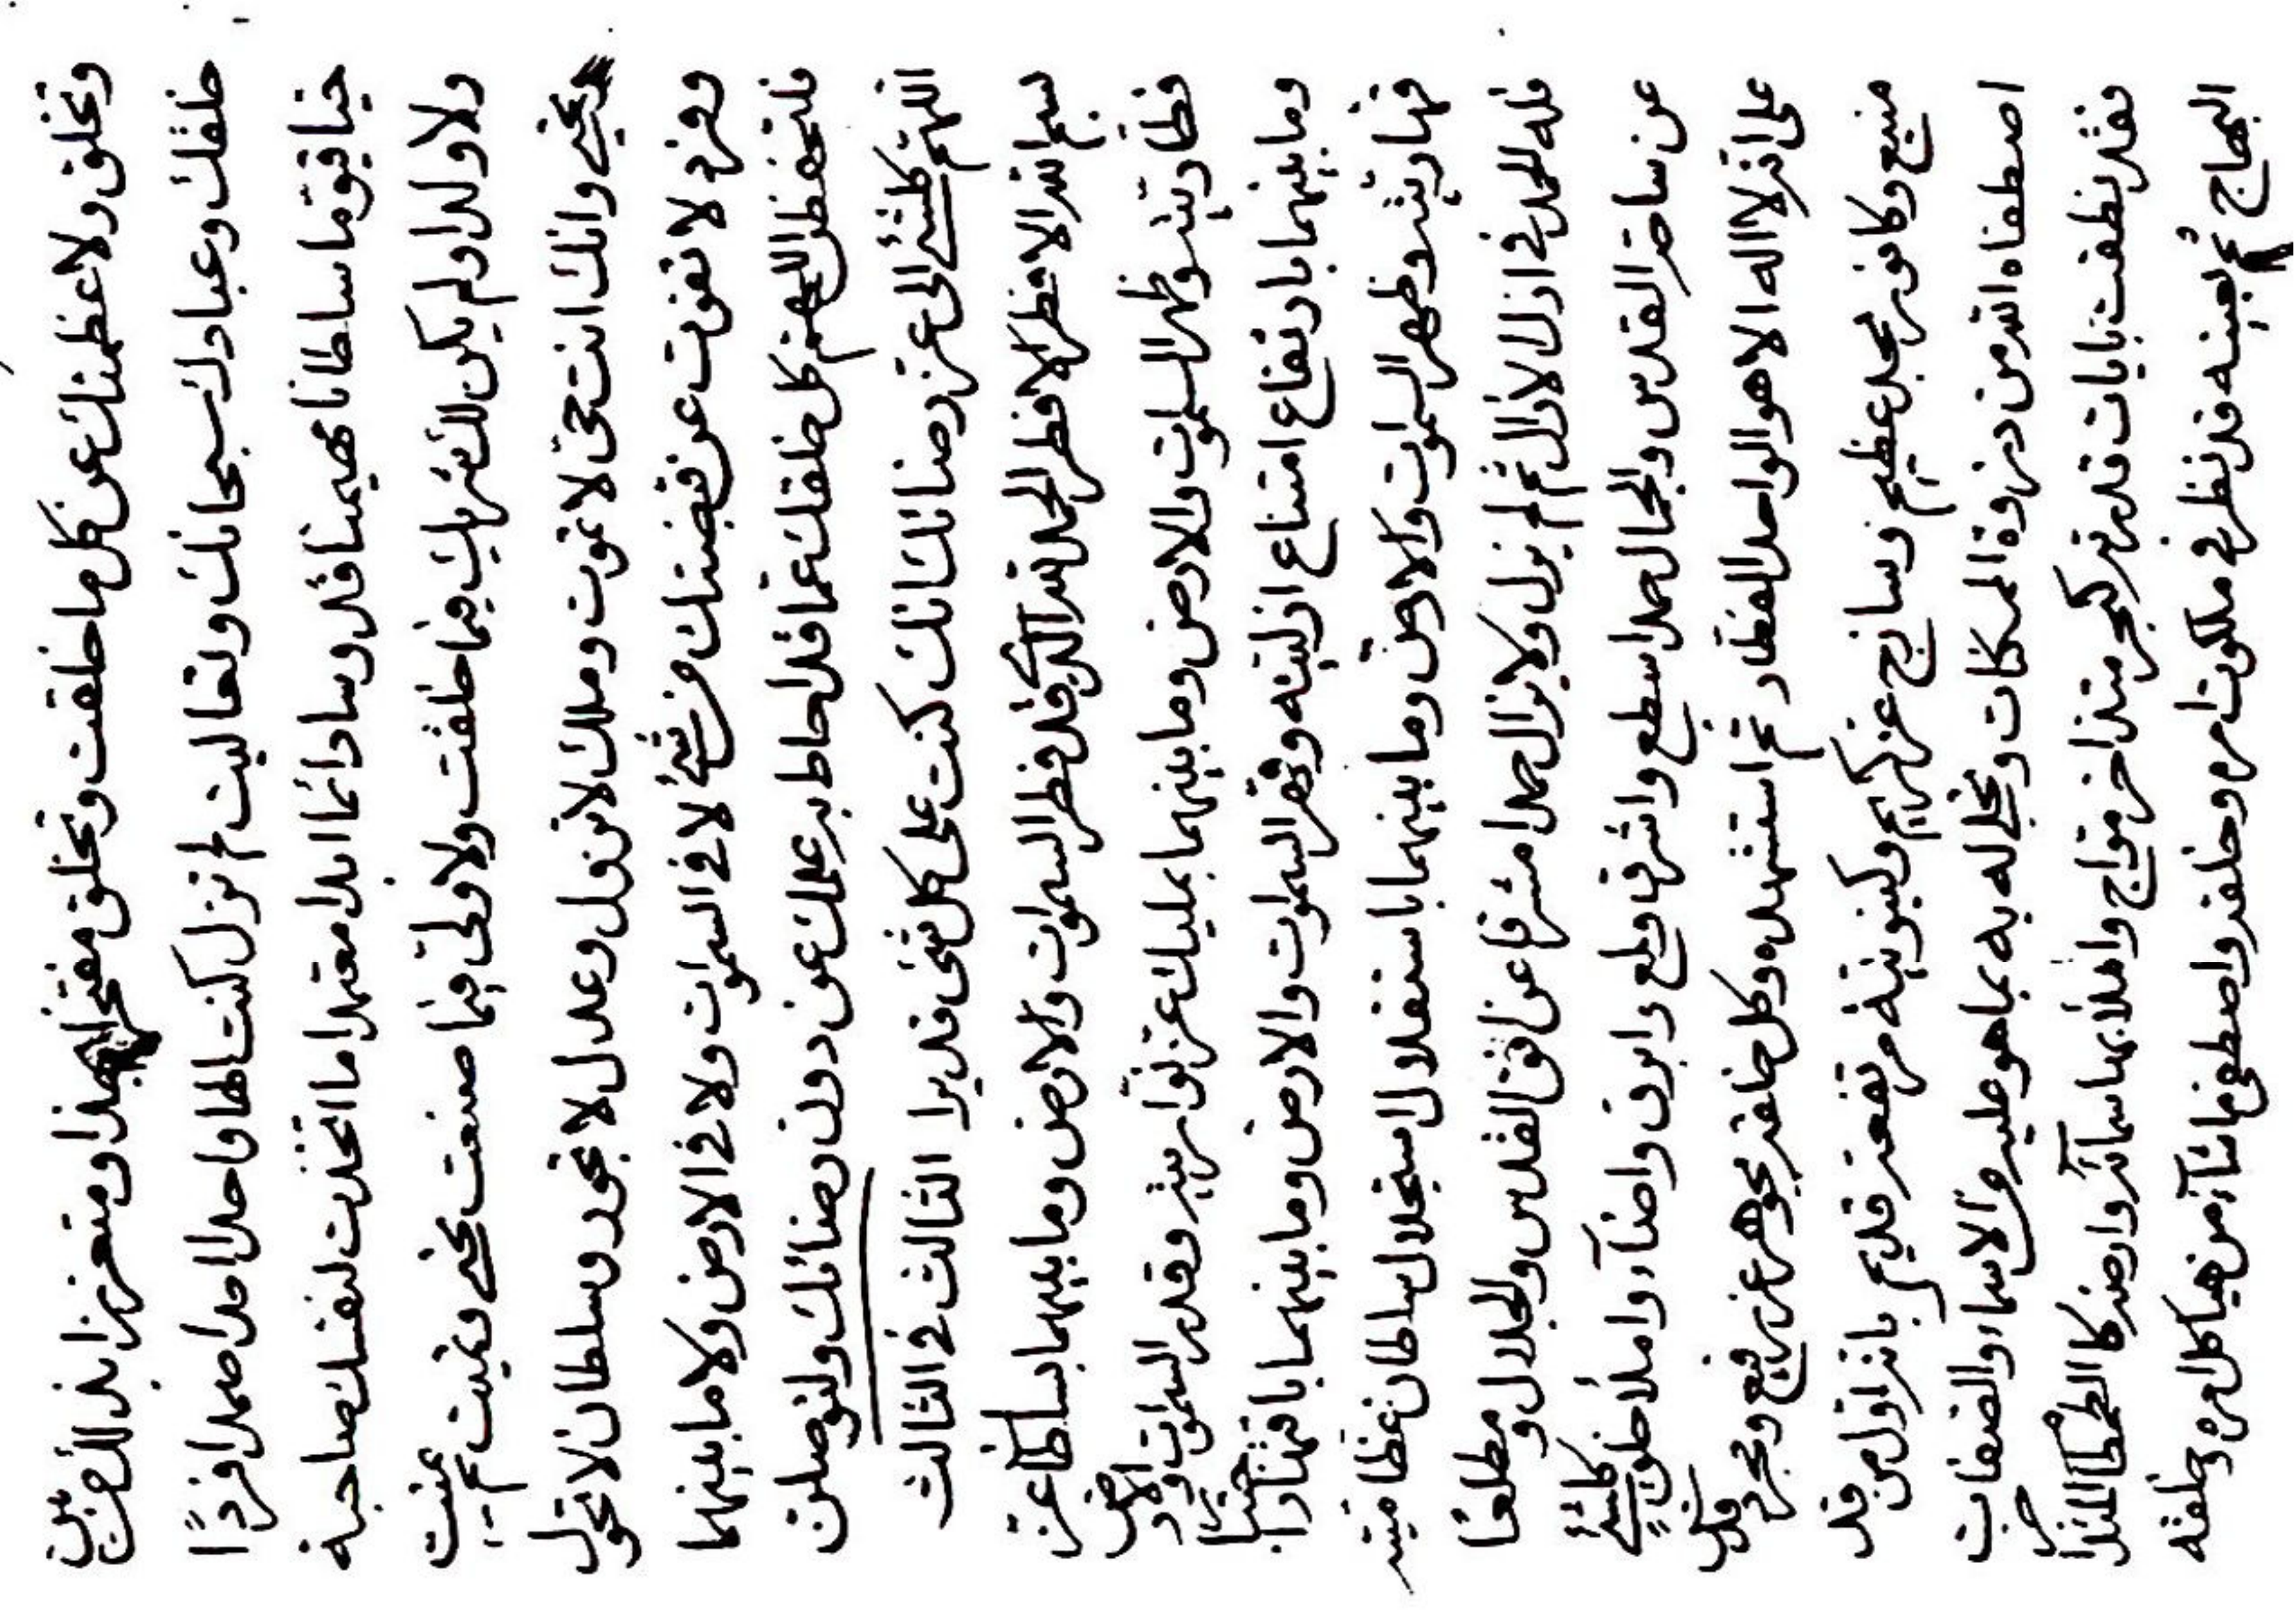 وتخلق ولاعظمنك عن كل ما خلقت وتخلق مفتخرا بهذا ومتعززا بذلك بين
خلقك وعبادك سبحانك وتعاليت لم تزل كنت الها واحدا احدا صمدا فردًا
حيا قيوما سلطانا مهيمنا قدوسا دائما ابدا معتمدا ما اتخذت لنفسك صاحبة
ولا ولدا ولم يكن لك شريك فيما خلقت ولا ولى فيما صنعت تحيي وتميت ثم تميت
وتحيي وانك انت حى لا تموت وملك لا تزول وعدل لا تجور وسلطان لا تحول
وفرد لا تفوت عن قبضتك من شئ لا في السموات ولا في الارض ولا ما بينهما
فلتحفظن اللهم كل خلقك عما قد احاط به علمك عن دون رضائك ولتوصلن
اللهم كلشئ الى عز رضائك انك كنت على كل شئ قديرا الثالث في الثالث
بسم الله الافطر الافطر الحمد لله الذي قد فطر السموات والارض وما بينهما بسلطان عز
فطاريته وظهر السموات والارض وما بينهما بمليك عز نواريته وقدر السموات والارض
وما بينهما بارتفاع امتناع ازليته وقهر السموات والارض وما بينهما باقتهار
قهاريته وظهر السموات والارض وما بينهما باستقلال استجلال سلطان عظاميته
فله الحمد في ازل الازال ثم لم يزل ولا يزال حمدا مشرقا عن افق القدس والجلال ومطلعا
عن ساحة القدس والجمال حمدا سطع واشرق ولمع وابرق واضآء واملأ خلق كلشئ
على انه لا اله الا هو الواحد الفطار ثم استشهده وكل خلقه بجوهر عز رفيع ومجرد
منيع وكافور مجد عظيم وساذج عز كريم وكينونية مرتفعة قديم بانه اول من قد
اصطفاه الله من ذروة الممكنات وتجلى له به بما هو عليه من الاسماء والصفات
فقد نطقت بايات قدرته كبحر متذاخر متواج واملأ بها سمائه وارضه
البهاج ثم بعينه قد نظر في ملكوت امره وخلقه واصطفى ما شآء من هياكل امره وخلقه